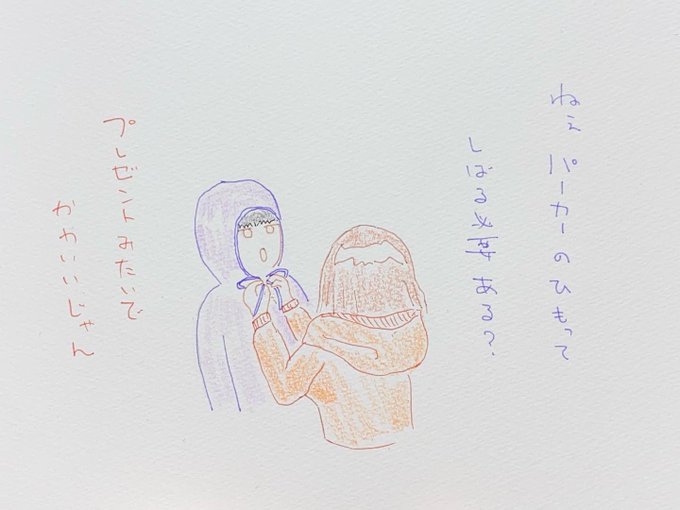 ねぇ パーカーのひもって
しばる必要ある？
プレゼントみたいで
かわいいじゃん